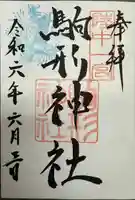 奉拝
駒形神社
令和六年六月二日